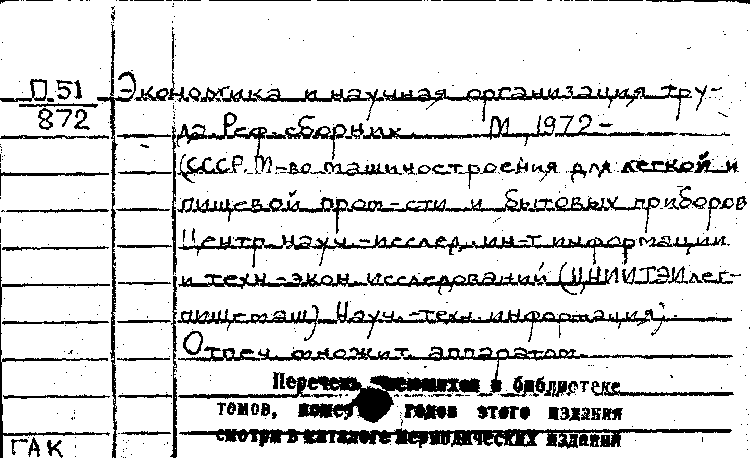 П.51
872
Экономика и научная организация тру-
да. Реф. сборник. М., 1972-
(СССР. М-во машиностроения для легкой и
пищевой пром-сти и бытовых приборов
Центр. науч.-исслед. ин-т информации
и техн.-экон. исследований (ЦНИИТЭИлег-
пищемаш). Науч.-техн. информация).
Отпеч. множит. аппаратом.
Перечень имеющихся в библиотеке
томов, номеров, годов этого издания
смотри в каталоге периодических изданий
ГАК